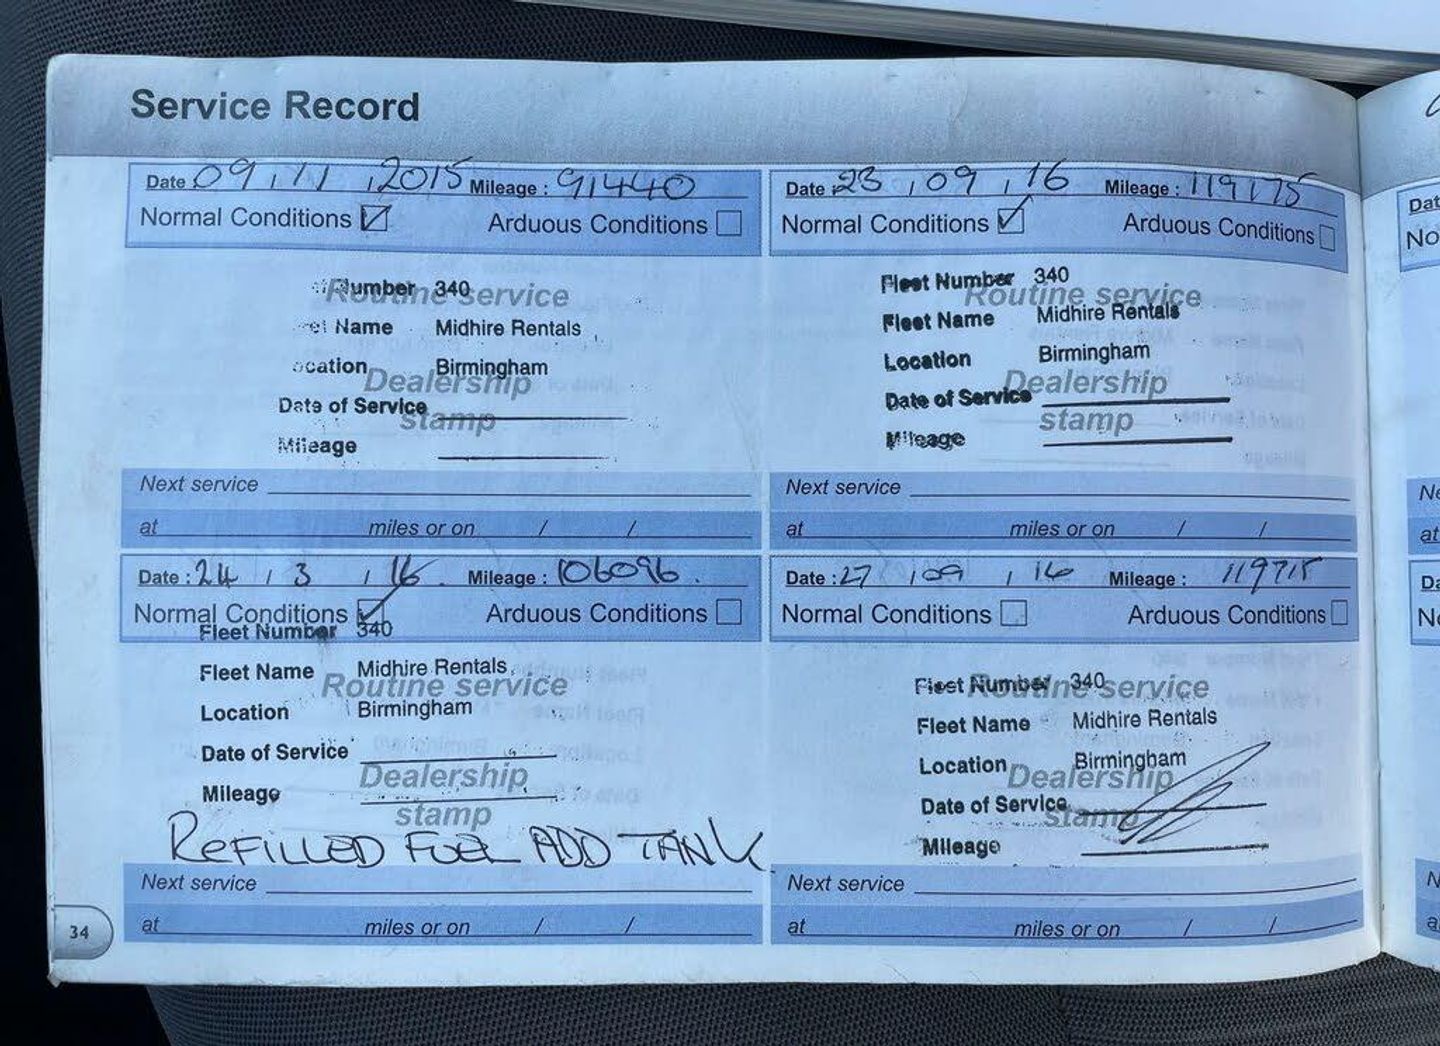 Service Record
Date 09 / 11 / 2015 Mileage : 91440
Normal Conditions Arduous Conditions
Number 340
Routine service
Name Midhire Rentals
Location Birmingham
Dealership
Date of Service
stamp
Mileage
Next service
at miles or on / /
Date 23 / 09 / 16 Mileage : 119175
Normal Conditions Arduous Conditions
Fleet Number 340
Routine service
Fleet Name Midhire Rentals
Location Birmingham
Dealership
Date of Service
stamp
Mileage
Next service
at miles or on / /
Date : 24 / 3 / 16 Mileage : 106096
Normal Conditions Arduous Conditions
Fleet Number 340
Fleet Name Midhire Rentals
Routine service
Location Birmingham
Date of Service
Dealership
Mileage
stamp
REFILLED FUEL ADD TANK
Next service
at miles or on / /
Date : 27 / 09 / 16 Mileage : 119715
Normal Conditions Arduous Conditions
Fleet Number 340
Routine service
Fleet Name Midhire Rentals
Location Birmingham
Dealership
Date of Service
stamp
Mileage
Next service
at miles or on / /
34